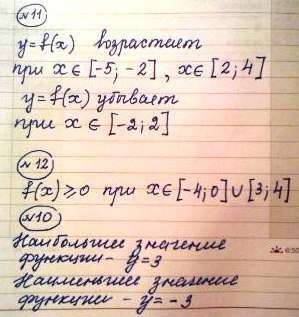 №11
y=f(x) возрастает
при x∈[-5;-2], x∈[2;4]
y=f(x) убывает
при x∈[-2;2]
№12
f(x)⩾0 при x∈[-4;0]∪[3;4]
№10
Наибольшее значение
функции - y=3
Наименьшее значение
функции - y=-3